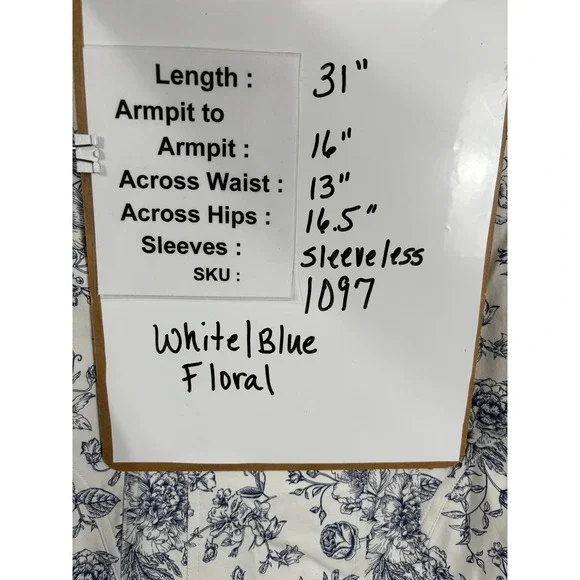 Length : 31"
Armpit to
Armpit : 16"
Across Waist : 13"
Across Hips : 16.5"
Sleeves : sleeveless
SKU : 1097
White/Blue
Floral